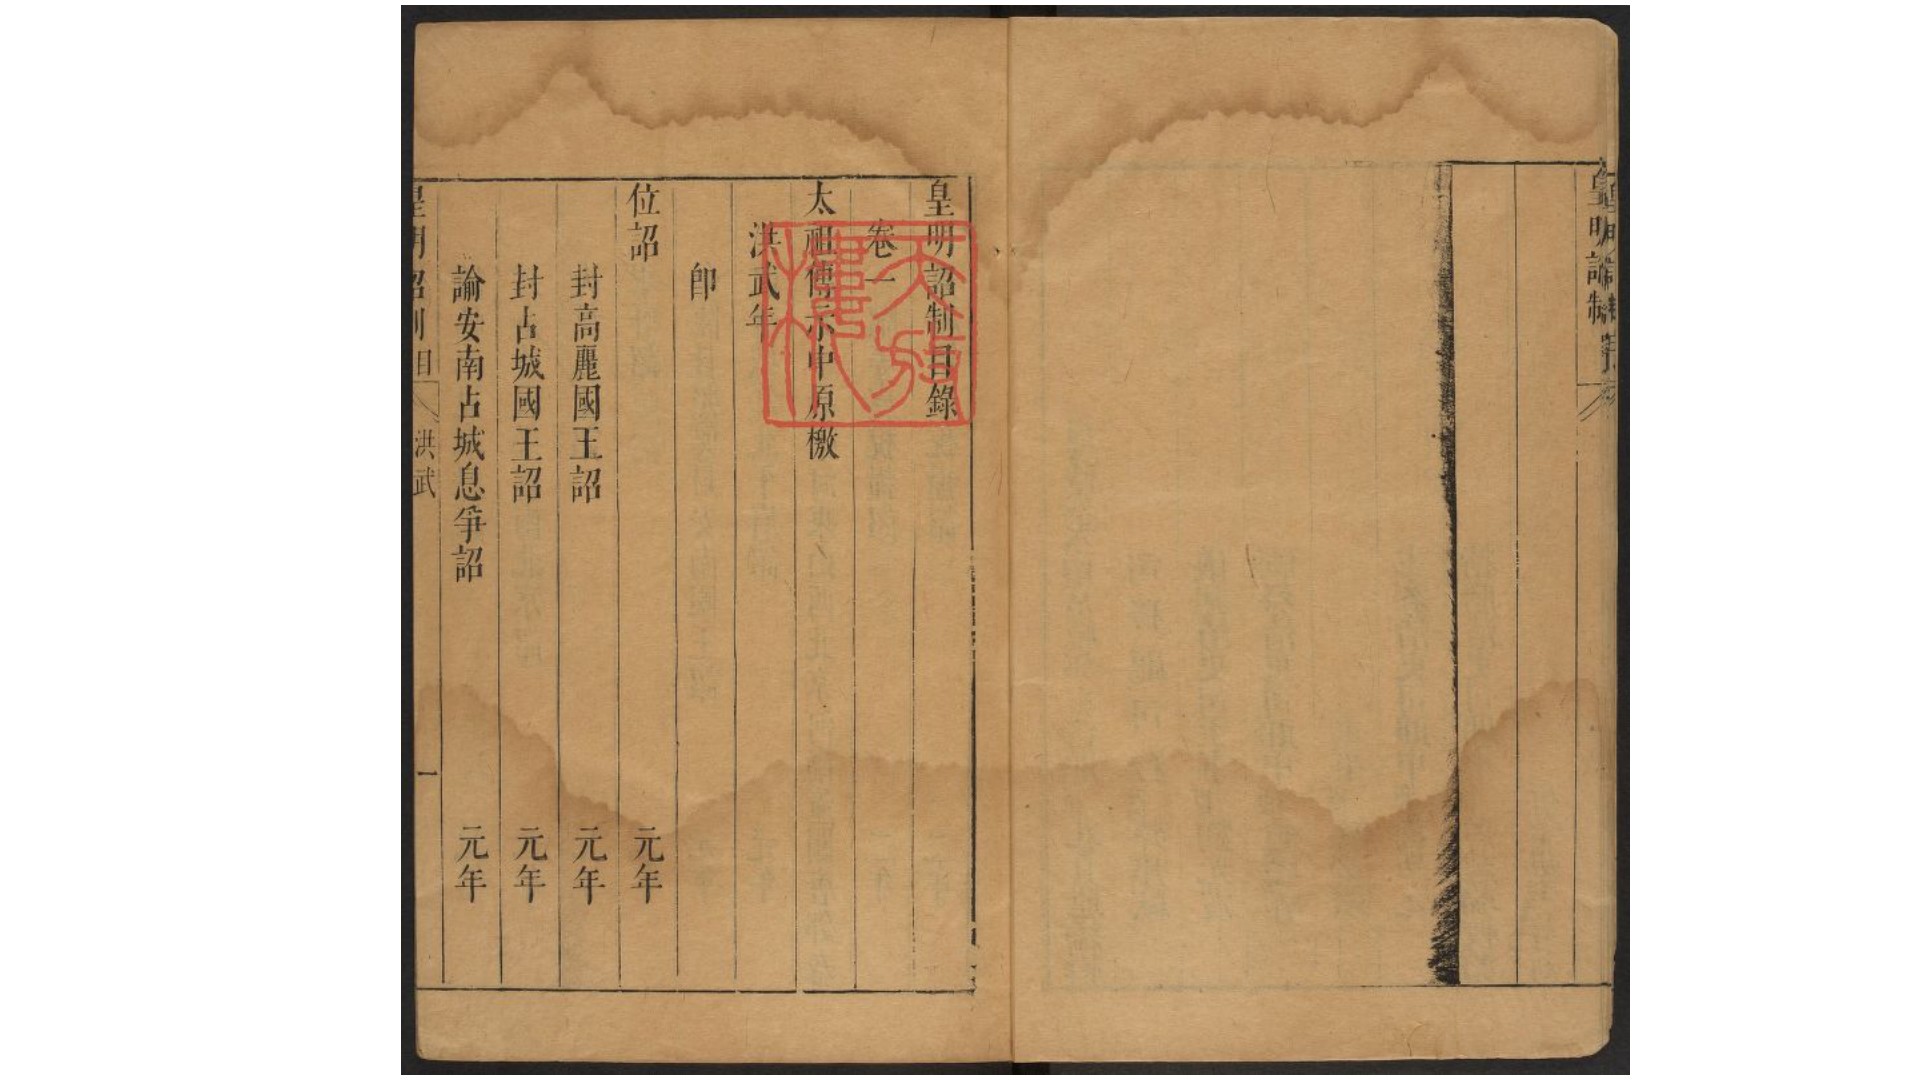 皇明詔制
皇明詔制目錄
卷一
太祖傳示中原檄
洪武年
即
位詔
元年
封高麗國王詔
元年
封占城國王詔
元年
諭安南占城息爭詔
元年
皇明詔制
目
洪武
一